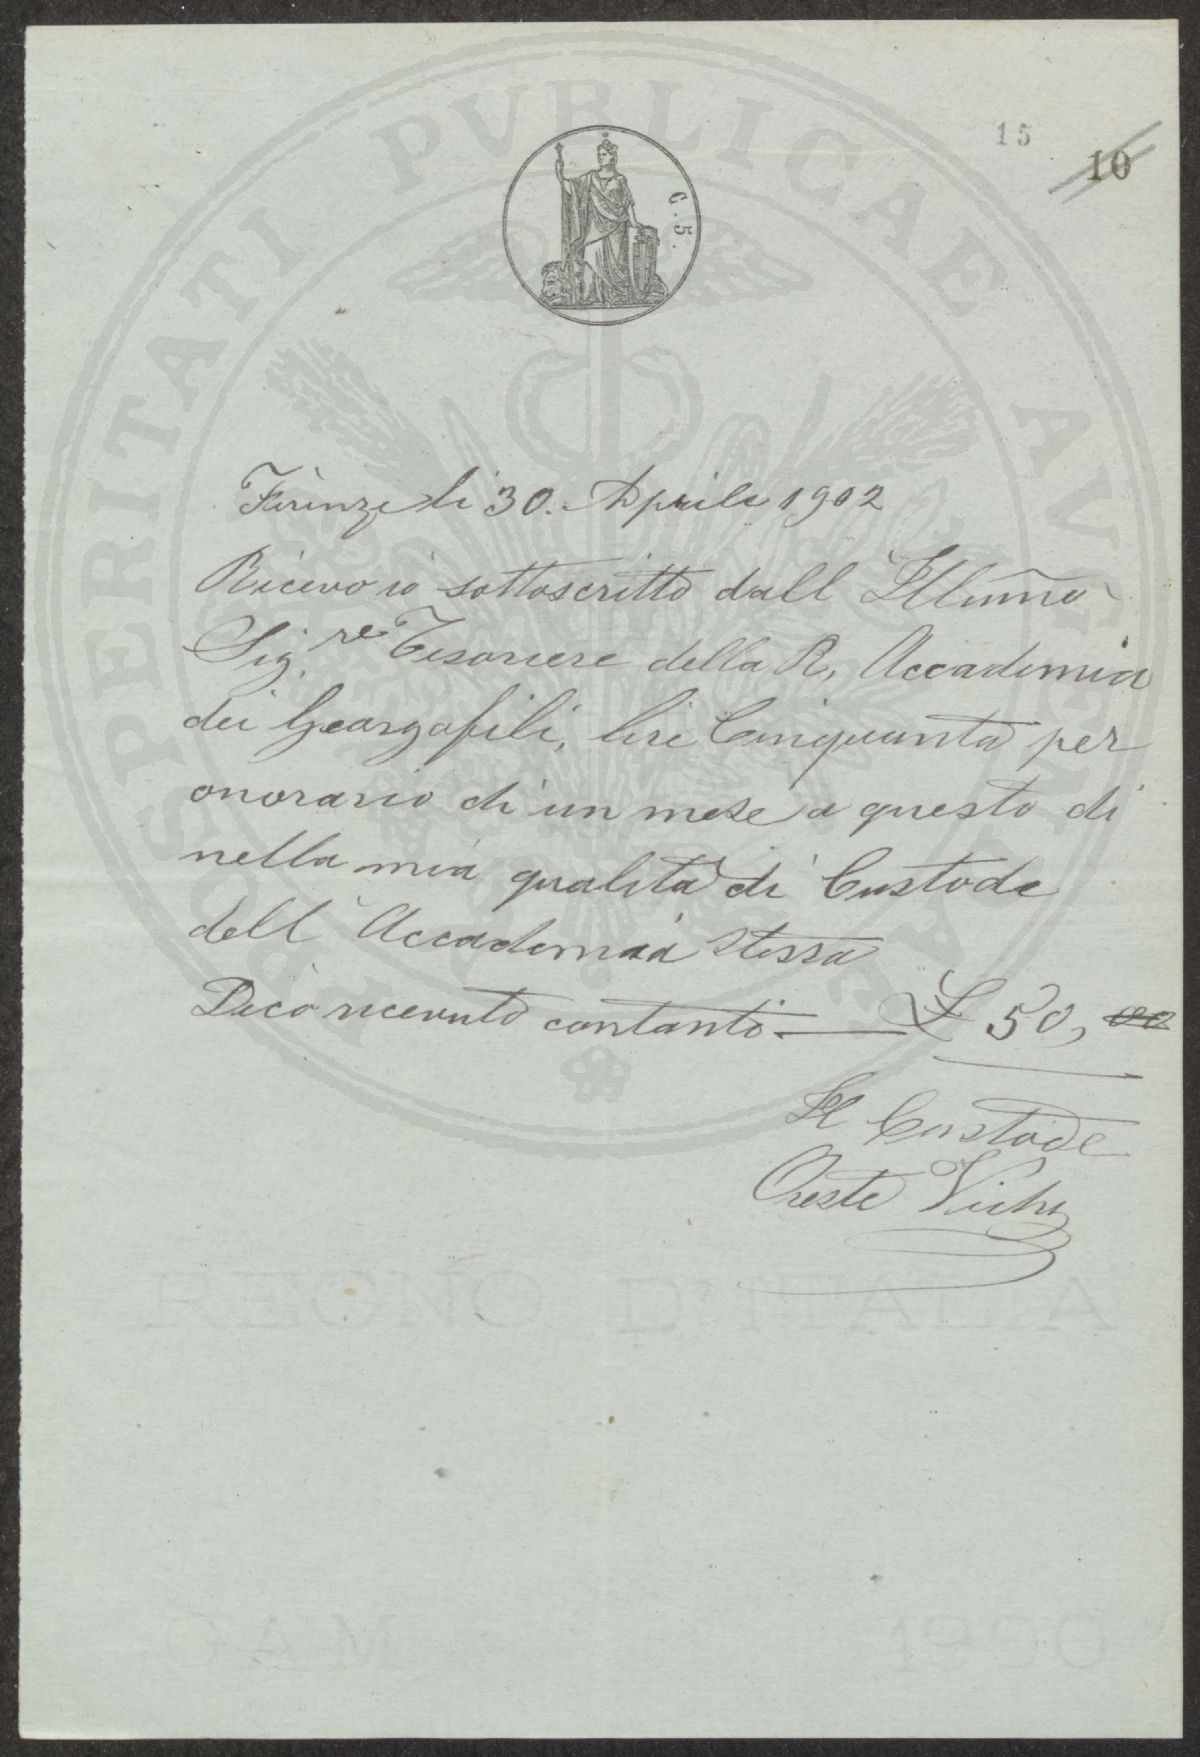 PROSPERITATI PVBLICAE AVGENDAE
15
10
C. 5.
Firenze li 30. Aprile 1902
Ricevo io sottoscritto dall' Illum̃o
Sig.re Tesoriere della R. Accademia
dei Georgofili, lire Cinquanta per
onorario di un mese a questo di
nella mia qualità di Custode
dell' Accademia stessa
Dico ricevuto contanti. — £ 50, 00
Il Custode
Oreste Vichi
REGNO D'ITALIA
1900